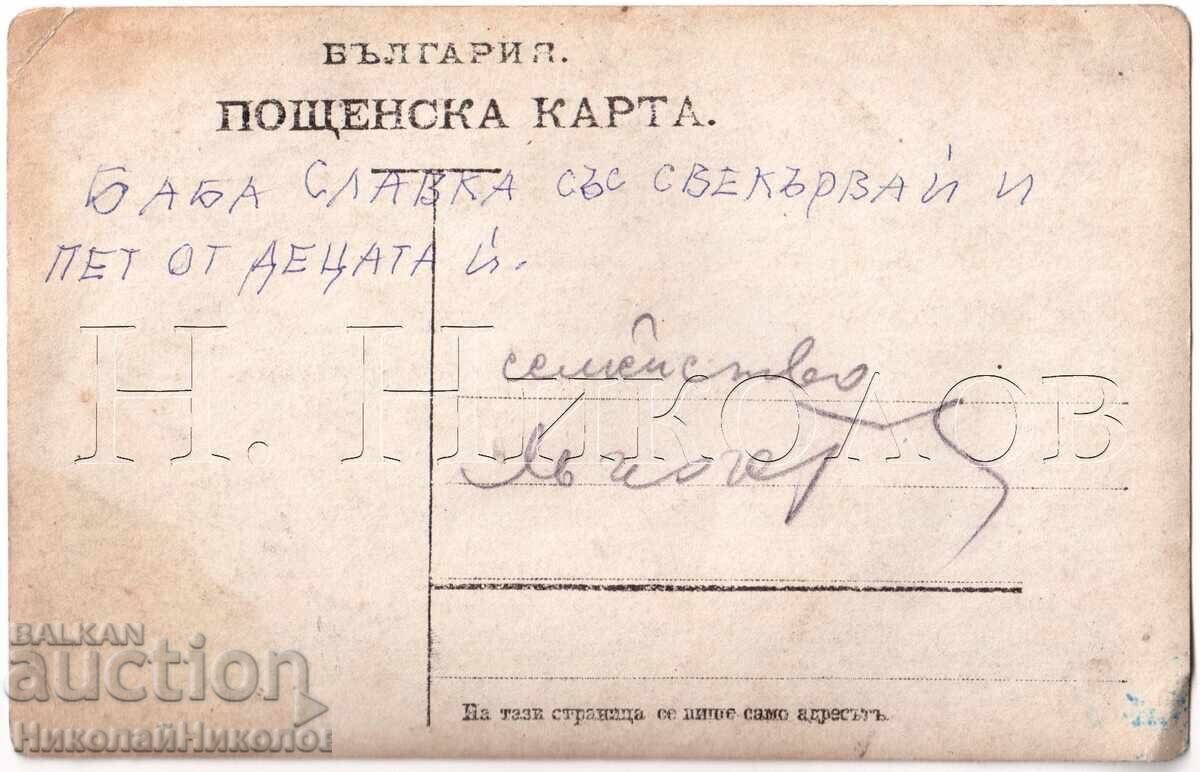 БЪЛГАРИЯ.
ПОЩЕНСКА КАРТА.
БАБА СЛАВКА СЪС СВЕКЪРВА Ѝ И
ПЕТ ОТ ДЕЦАТА Ѝ.
семейство
Н. Николов
На тази страница се пише само адресътъ.
BALKAN
auction
НиколайНиколов